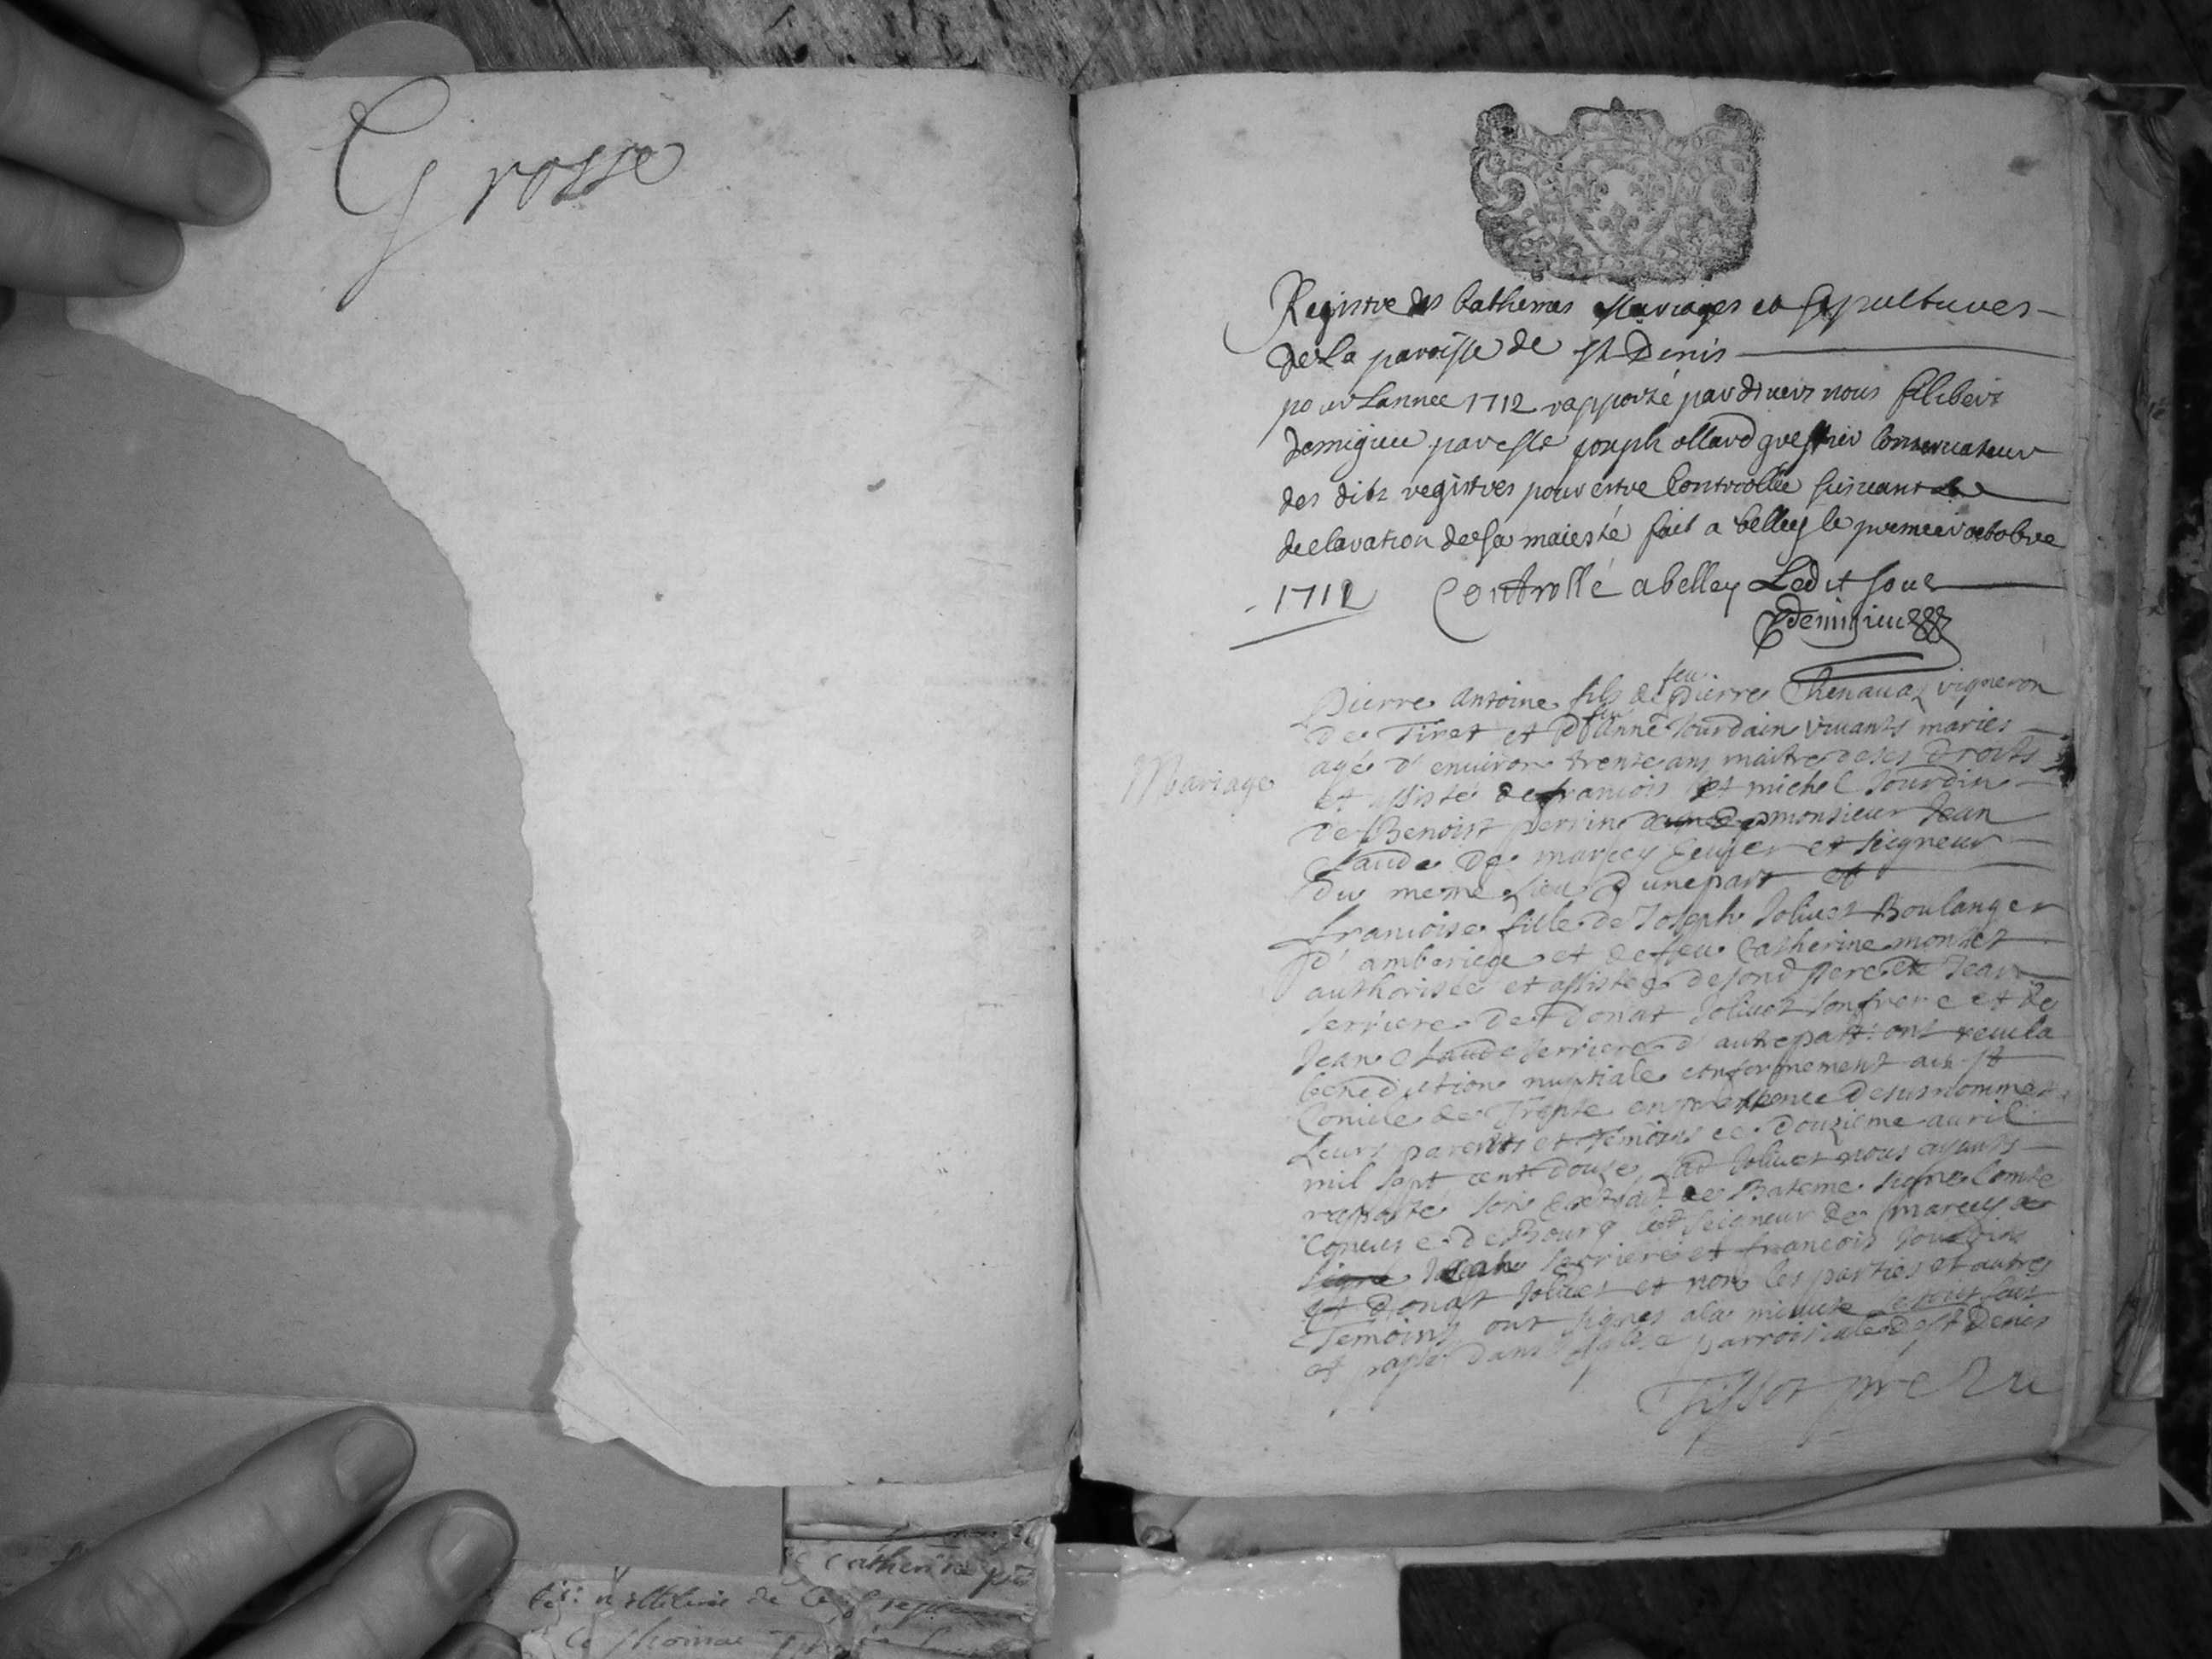 Grosse
Registre des bathemes Mariages et sepultures
de La paroisse de st Denis
pour Lannee 1712 rapporté pardevers nous filibert
demigieu par Me joseph ollard greffier Conservateur
des dits registres pour estre Controollée suivant la
declaration de sa maiesté fait a belley le premier octobre
1712 Controllé a belley Ledit Jour
Demigieu
feu
Pierre Antoine fils de Pierre Chenavaz vigneron
feu
de Tiret et d'Anne Jourdain vivants mariés
Mariage
agé d'environ trente ans maitre de ses Droits
et assisté de francois et michel Jourdin
de Benoist perrin monsieur Jean
Claude de Ecuyer et seigneur
du meme lieu d'une part et
francoise fille de Joseph Joliuet Boulanger
d'amberieu et de feu Catherine montet
authorisée et assistée de sond pere de Jean
serriere de donat Joliuet son frere et de
Jean Claude serriere d'autre part ont receu la
benediction nuptiale conformement au st
Concile de Trente en presence desusnommés
Leurs parents et Temoins ce Douzieme auril
mil sept cent douze, Lad Joliuet nous ayants
son Extrait de Bateme signé Comte
de Bourg seigneur de
signé serriere et francois Jourdin
et donat Joliuet et non les parties et autres
Temoins ont signes a la minute
et passé dans eglise parroissiale de st Denis
Tissot
Catherine
de